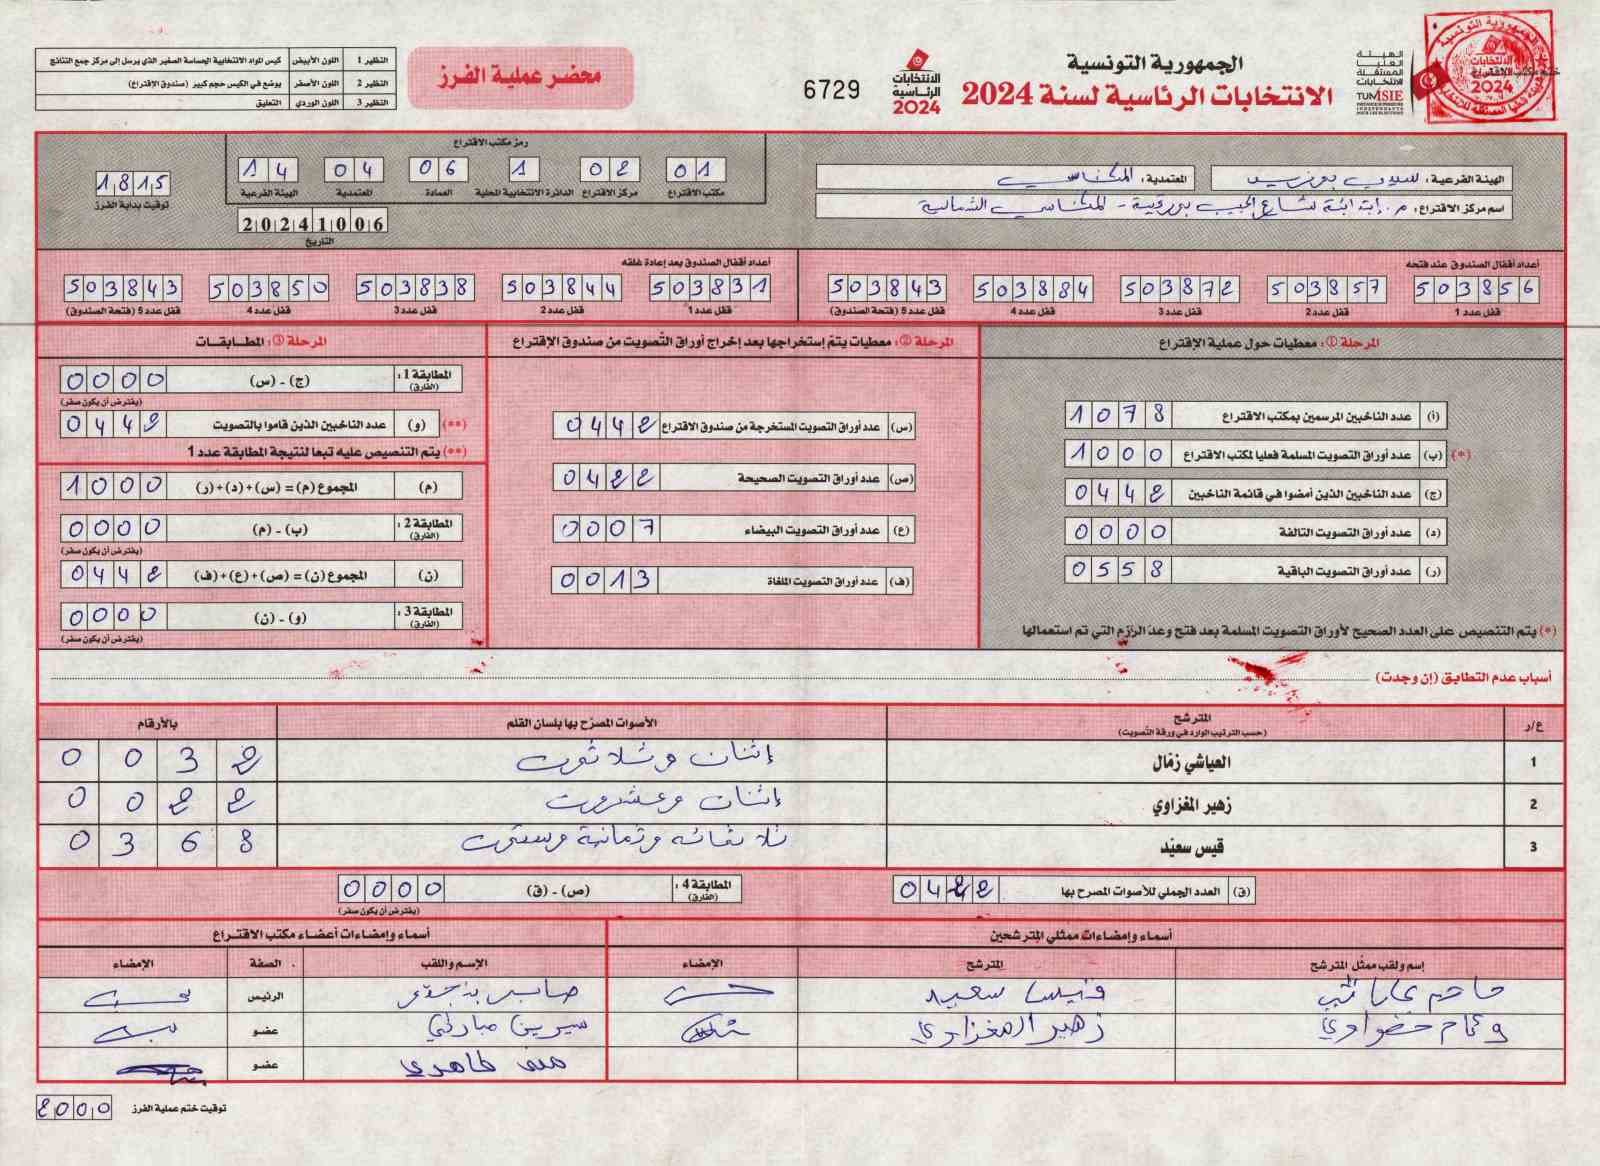 الجمهورية التونسية
الانتخابات الرئاسية لسنة 2024
الهيئة العليا المستقلة للانتخابات
TUNISIE
الانتخابات الرئاسية 2024
6729
محضر عملية الفرز
النظير 1 اللون الأبيض كيس المواد الانتخابية الحساسة الصغير الذي يرسل إلى مركز جمع النتائج
النظير 2 اللون الأصفر يوضع في الكيس حجم كبير (صندوق الإقتراع)
النظير 3 اللون الوردي التعليق
ختم مكتب الاقتراع
الهيئة الفرعية: سيدي بوزيد المعتمدية: المكناسي
اسم مركز الاقتراع: م. إبتدائية شارع الحبيب بورقيبة - المكناسي الشمالية
رمز مكتب الاقتراع
01 02 1 06 04 14
مكتب الاقتراع مركز الاقتراع الدائرة الانتخابية المحلية العمادة المعتمدية الهيئة الفرعية
20241006
التاريخ
1815
توقيت بداية الفرز
أعداد أقفال الصندوق عند فتحه
503856 503857 503872 503884 503843
قفل عدد 1 قفل عدد 2 قفل عدد 3 قفل عدد 4 قفل عدد 5 (فتحة الصندوق)
أعداد أقفال الصندوق بعد إعادة غلقه
503831 503844 503838 503850 503843
قفل عدد 1 قفل عدد 2 قفل عدد 3 قفل عدد 4 قفل عدد 5 (فتحة الصندوق)
المرحلة ①: معطيات حول عملية الإقتراع
(أ) عدد الناخبين المرسمين بمكتب الاقتراع 1078
(*) (ب) عدد أوراق التصويت المسلمة فعليا لمكتب الاقتراع 1000
(ج) عدد الناخبين الذين أمضوا في قائمة الناخبين 0442
(د) عدد أوراق التصويت التالفة 0000
(ر) عدد أوراق التصويت الباقية 0558
(*) يتم التنصيص على العدد الصحيح لأوراق التصويت المسلمة بعد فتح وعد الرزم التي تم استعمالها
المرحلة ②: معطيات يتم إستخراجها بعد إخراج أوراق التصويت من صندوق الإقتراع
(س) عدد أوراق التصويت المستخرجة من صندوق الاقتراع 0442
(ص) عدد أوراق التصويت الصحيحة 0422
(ع) عدد أوراق التصويت البيضاء 0007
(ف) عدد أوراق التصويت الملغاة 0013
المرحلة ③: المطابقات
المطابقة 1: (الفارق) (ج) - (س) 0000
(يفترض أن يكون صفر)
(**) (و) عدد الناخبين الذين قاموا بالتصويت 0442
(**) يتم التنصيص عليه تبعا لنتيجة المطابقة عدد 1
(م) المجموع (م) = (س)+(د)+(ر) 1000
المطابقة 2: (الفارق) (ب) - (م) 0000
(يفترض أن يكون صفر)
(ن) المجموع (ن) = (ص)+(ع)+(ف) 0442
المطابقة 3: (الفارق) (و) - (ن) 0000
(يفترض أن يكون صفر)
أسباب عدم التطابق (إن وجدت)
ع/ر المترشح (حسب الترتيب الوارد في ورقة التصويت) الأصوات المصرح بها بلسان القلم بالأرقام
1 العياشي زمّال إثنان وثلاثون 0032
2 زهير المغزاوي إثنان وعشرون 0022
3 قيس سعيّد ثلاثمائة وثمانية وستون 0368
(ق) العدد الجملي للأصوات المصرح بها 0422
المطابقة 4: (الفارق) (ص) - (ق) 0000
(يفترض أن يكون صفر)
أسماء وإمضاءات ممثلي المترشحين
إسم ولقب ممثل المترشح المترشح الإمضاء
قيس سعيد
وئام خضراوي زهير المغزاوي
أسماء وإمضاءات أعضاء مكتب الاقتراع
الإسم واللقب الصفة الإمضاء
صابر الرئيس
سيرين مباركي عضو
منى طاهري عضو
توقيت ختم عملية الفرز 2000